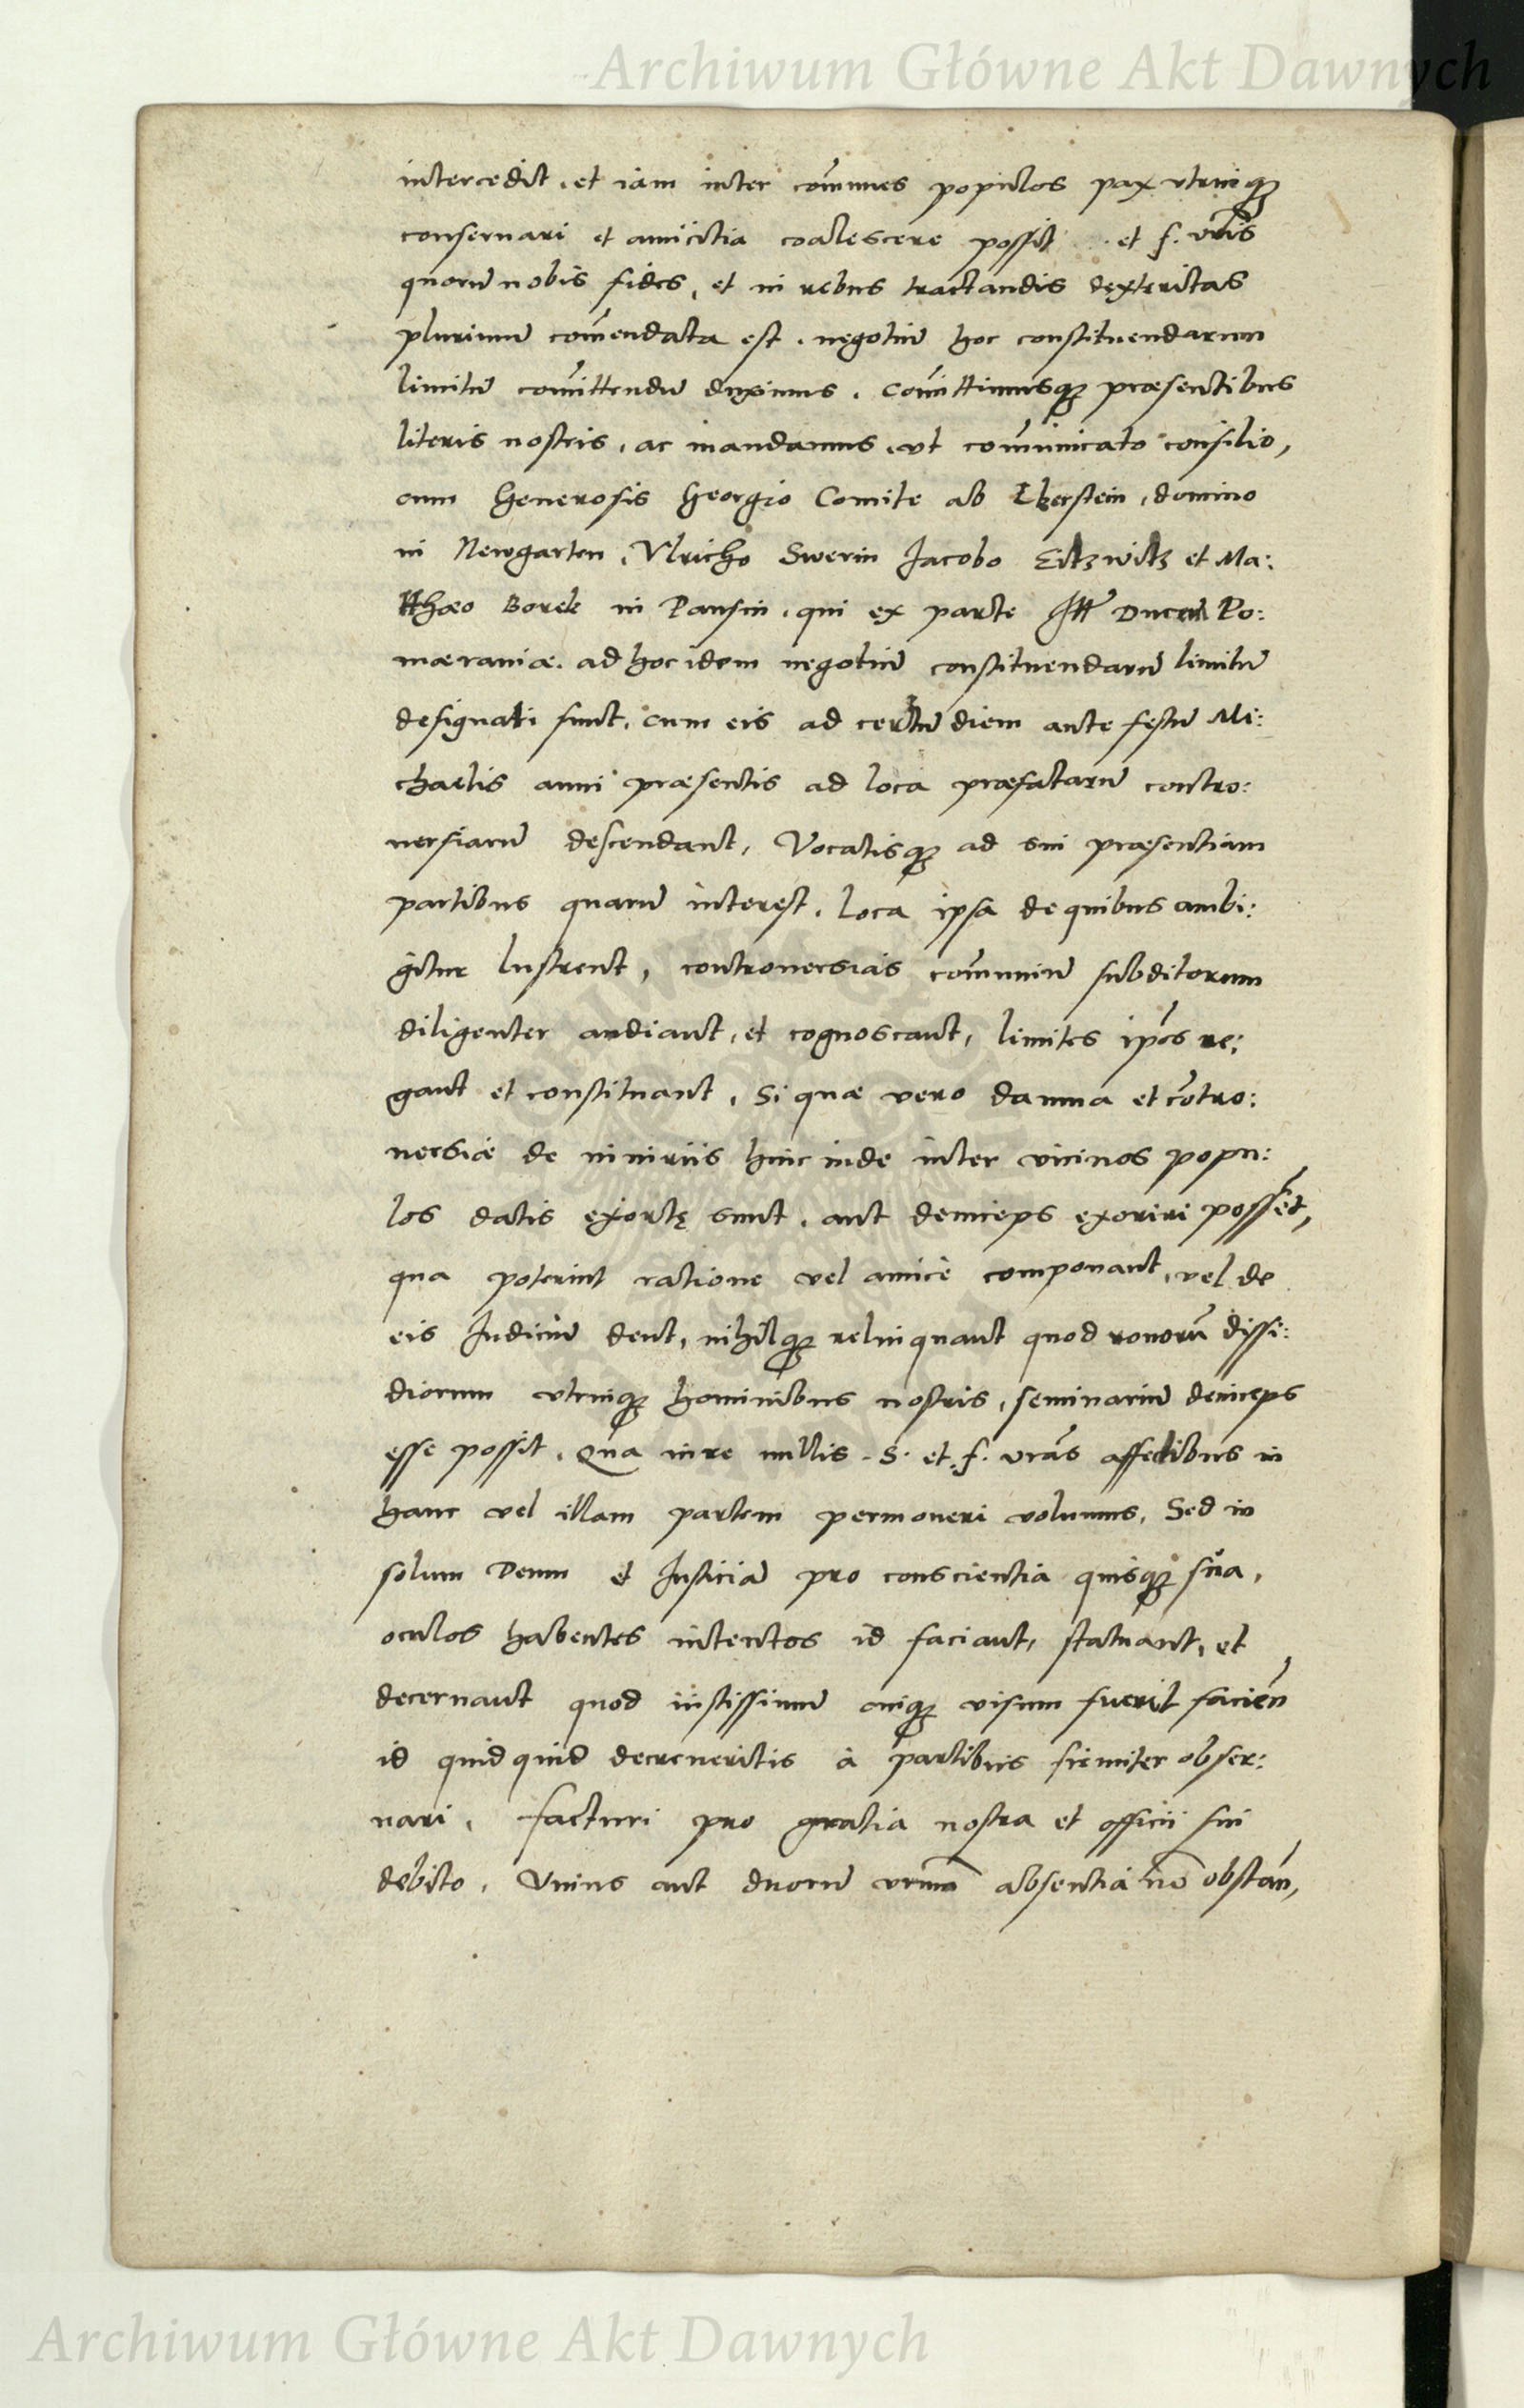 Archiwum Główne Akt Dawnych
intercedit, et iam inter com̃unes populos pax utrinq́ꝫ
conseruari et amicitia coalescere possit . et f. vr̃is
quorũ nobis fides, et in rebus tractandis dexteritas
plurimũ com̃endata est. negotiũ hoc constituendarum
limitũ com̃ittendũ duximus. Com̃ittimusq́ꝫ præsentibus
literis nostris, ac mandamus, vt com̃unicato consilio,
cum Generosis Georgio Comite ab Eberstein, domino
in Newgarten, Vlricho Swerin Jacobo Citzwitz et Ma:
tthæo Borck in Pansin, qui ex parte Ill̃ Ducum Po:
mæraniæ. ad hoc idem negotiũ constituendarũ limitũ
designati sunt, cum eis ad certũ diem ante festũ Mi:
chaelis anni præsentis ad loca præfatarũ contro:
uersiarũ descendant, Vocatisq́ꝫ ad sui præsentiam
partibus quarũ interest, loca ipsa de quibus ambi:
gitur lustrent, controuersias com̃uniũ subditorum
diligenter audiant, et cognoscant, limites ip̃os re:
gant et constituant. Si quæ vero damna et cõtro:
uersiæ de iniuriis hinc inde inter vicinos popu:
los datis exortę sunt, aut deinceps exoriri possẽt,
qua poterint ratione vel amicè componant, vel de
eis Judiciũ dent, nihilq́ꝫ relinquant quod nouorũ dissi:
diorum vtrinq́ꝫ hominibus nostris, seminariũ deinceps
esse possit. Qua in re nullis S. et. f. vr̃as affectibus in
hanc vel illam partem permoueri volumus, Sed in
solum Deum et Justiciã pro conscientia quisq́ꝫ sua,
oculos habentes intentos id faciant, statuant, et
decernant quod iustissimũ cuiq́ꝫ visum fuerit facieñ
id quidquid decreueritis à partibus firmiter obser:
uari. facturi pro gratia nostra et officii sui
debito. Vnius aut duorũ vr̃um absentia nõ obstañ,
Archiwum Główne Akt Dawnych